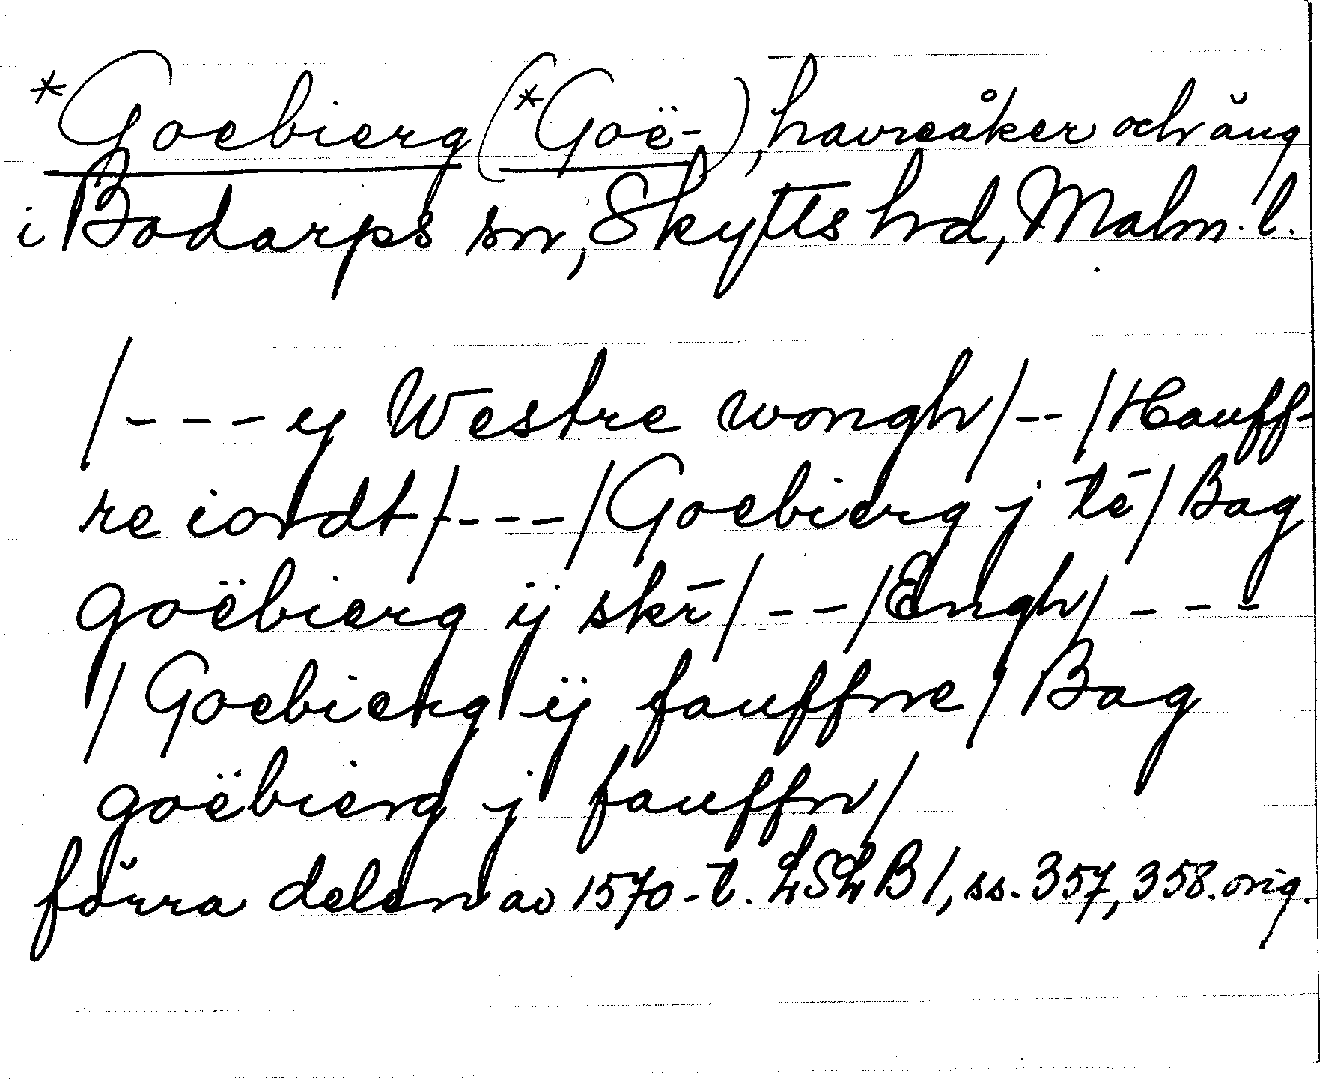 *Goebierg (*Goë-), havreåker och äng
i Bodarps sn, Skytts hd, Malm. l.
/---y Westre wongh/--/Hauff-
re iordt/---/Goebierg j tē/Bag
goëbierg ij skr̄/--/Engh/---
/Goebierg ij fauffne/Bag
goëbierg j fauffn/
förra delen av 1570-t. LSLB1, ss. 357, 358. orig.